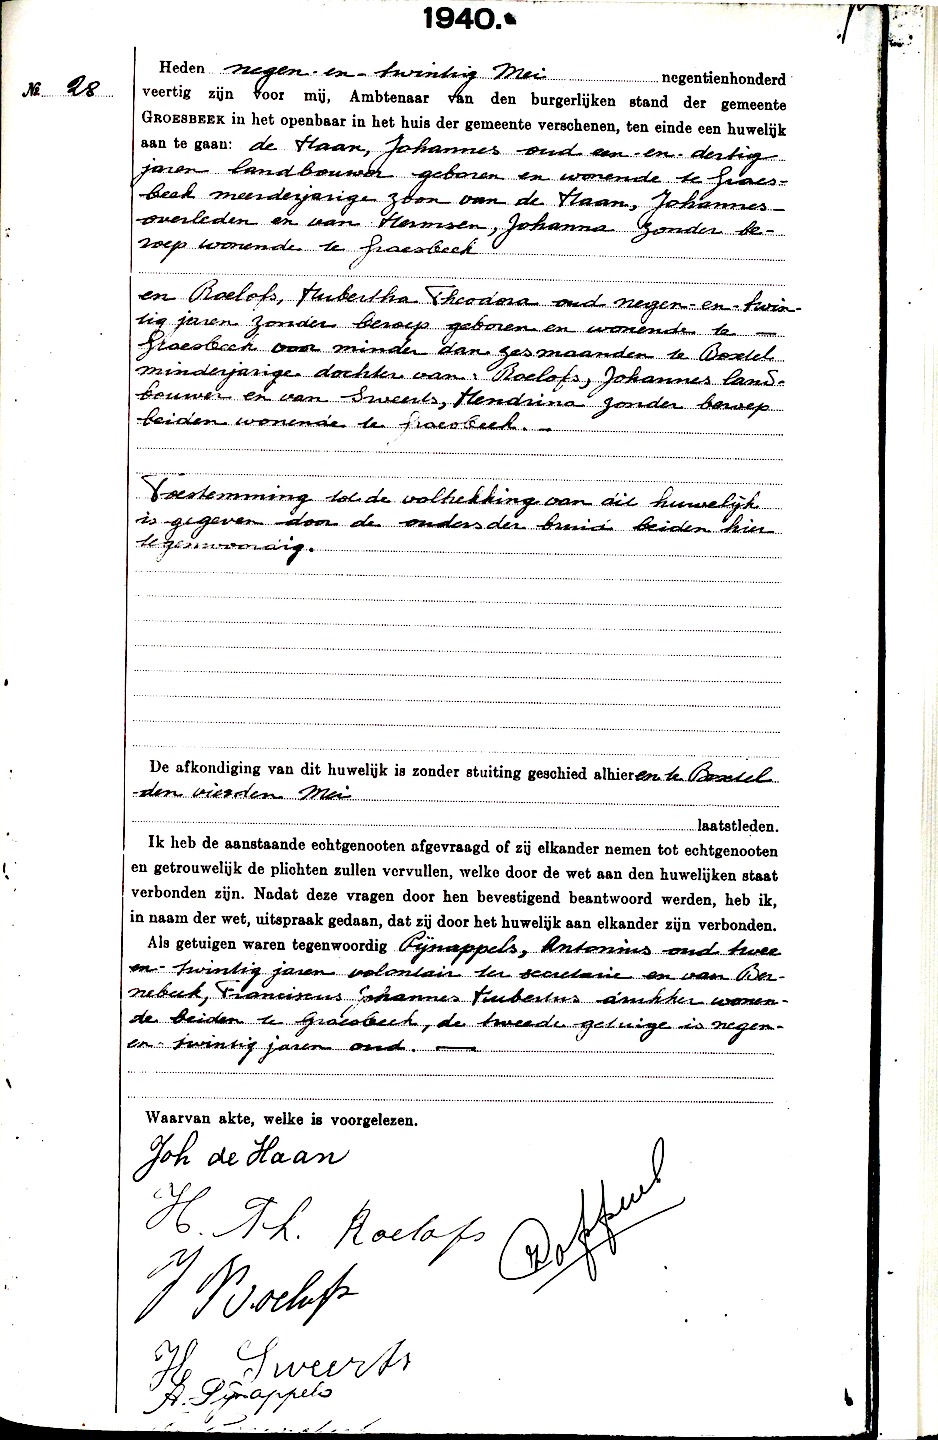 1940.
Nº. 28
Heden negen-en-twintig Mei negentienhonderd
veertig zijn voor mij, Ambtenaar van den burgerlijken stand der gemeente
GROESBEEK in het openbaar in het huis der gemeente verschenen, ten einde een huwelijk
aan te gaan: de Haan, Johannes oud een-en-dertig
jaren landbouwer geboren en wonende te Groes-
beek meerderjarige zoon van de Haan, Johannes
overleden en van Hermsen, Johanna zonder be-
roep wonende te Groesbeek
en Roelofs, Hubertha Theodora oud negen-en-twin-
tig jaren zonder beroep geboren en wonende te —
Groesbeek voor minder dan zes maanden te Boxtel
minderjarige dochter van: Roelofs, Johannes land-
bouwer en van Sweerts, Hendrina zonder beroep
beiden wonende te Groesbeek. —
Toestemming tot de voltrekking van dit huwelijk
is gegeven door de ouders der bruid beiden hier
tegenwoordig.
De afkondiging van dit huwelijk is zonder stuiting geschied alhier en te Boxtel
den vierden Mei
laatstleden.
Ik heb de aanstaande echtgenooten afgevraagd of zij elkander nemen tot echtgenooten
en getrouwelijk de plichten zullen vervullen, welke door de wet aan den huwelijken staat
verbonden zijn. Nadat deze vragen door hen bevestigend beantwoord werden, heb ik,
in naam der wet, uitspraak gedaan, dat zij door het huwelijk aan elkander zijn verbonden.
Als getuigen waren tegenwoordig Pijnappels, Antonius oud twee
en-twintig jaren volontair ter secretarie en van Ber-
nebeek, Franciscus Johannes Hubertus drukker wonen-
de beiden te Groesbeek, de tweede getuige is negen-
en-twintig jaren oud. —
Waarvan akte, welke is voorgelezen.
Joh de Haan
H. Th. Roelofs
J Roelofs
H Sweerts
A. Pijnappels